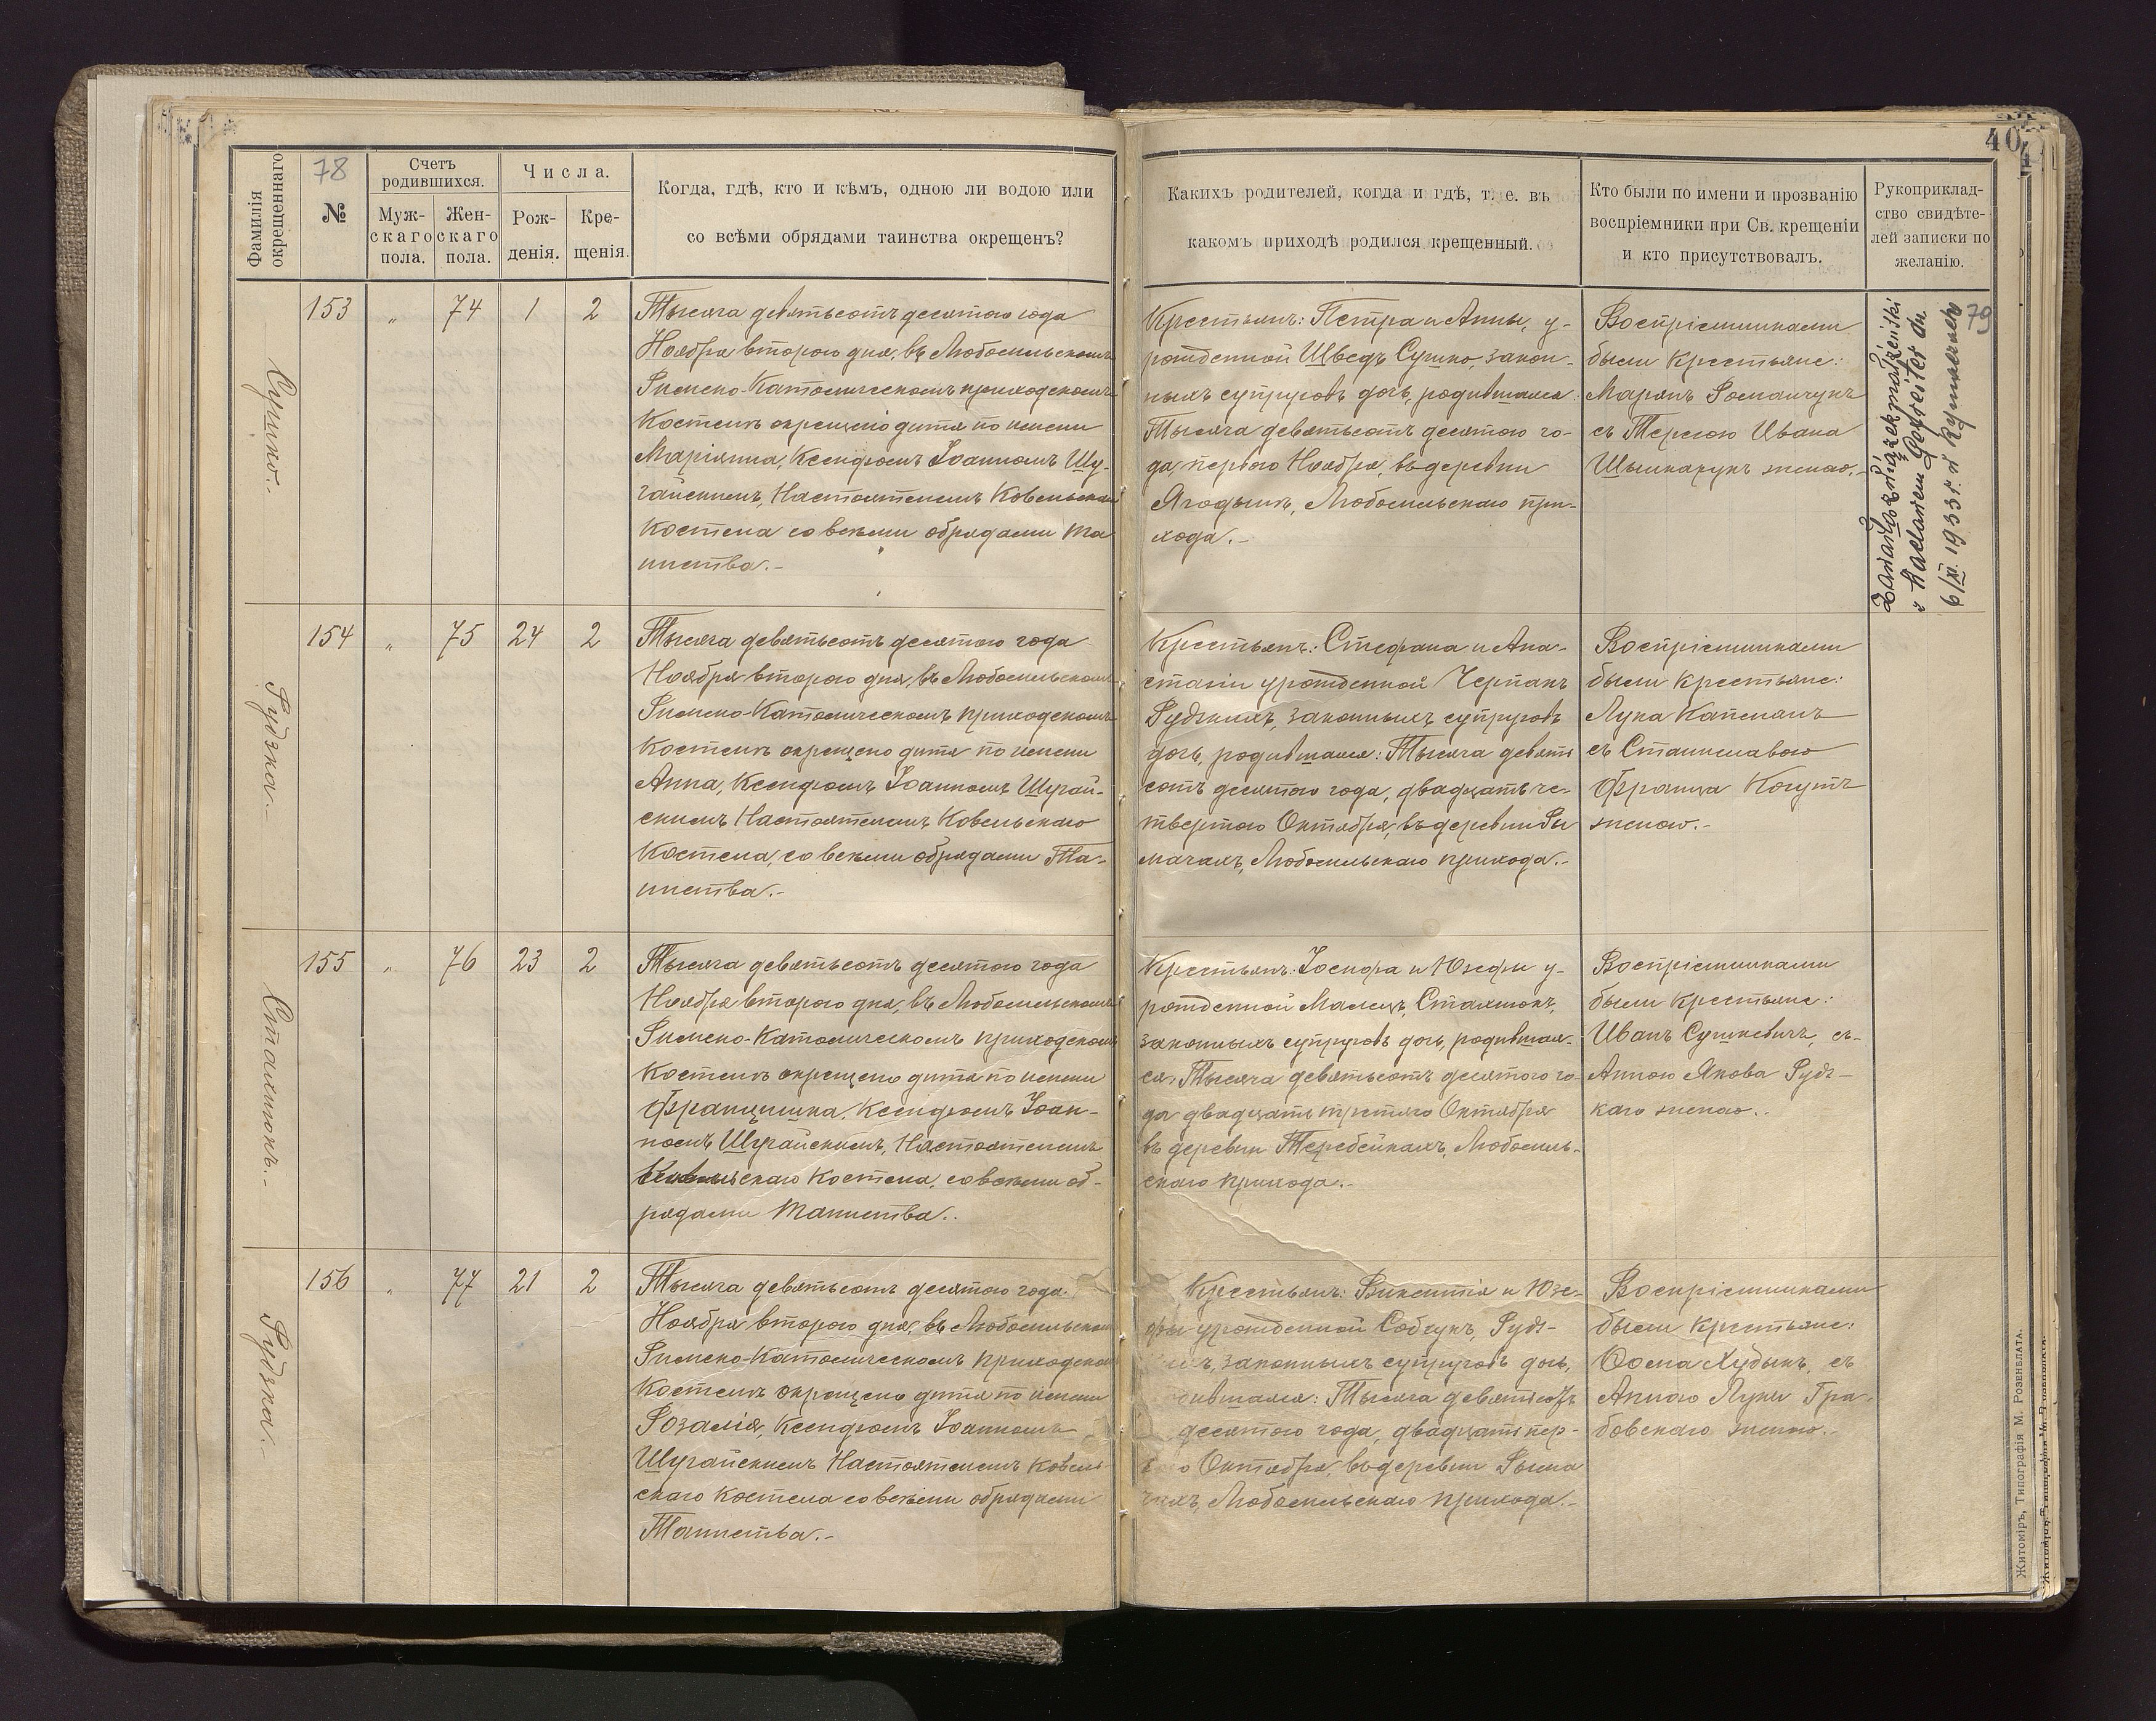 Фамилія
окрещеннаго
78
№
Счетъ
родившихся.
Муж-
скаго
пола.
Жен-
скаго
пола.
Числа.
Рож-
денія.
Кре-
щенія.
Когда, гдѣ, кто и кѣмъ, одною ли водою или
со всѣми обрядами таинства окрещенъ?
Сушко.-
153 „ 74 1 2
Тысяча девятьсотъ десятаго года
Ноября второго дня, въ Любомльскомъ
Римско-Католическомъ приходскомъ
Костелѣ окрещено дитя по имени
Маріянна, Ксендзомъ Іоанномъ Шу-
гайскимъ, Настоятелемъ Ковельскаго
Костела со всѣми обрядами Та
инства.-
Рудзка.-
154 „ 75 24 2
Тысяча девятьсотъ десятаго года
Ноября второго дня, въ Любомльскомъ
Римско-Католическомъ приходскомъ
Костелѣ окрещено дитя по имени
Анна, Ксендзомъ Іоанномъ Шугай-
скимъ Настоятелемъ Ковельскаго
Костела, со всѣми обрядами Та-
инства.-
Стахнюкъ.-
155 „ 76 23 2
Тысяча девятьсотъ десятаго года
Ноября второго дня, въ Любомльскомъ
Римско-Католическомъ приходскомъ
Костелѣ окрещено дитя по имени
Францишка, Ксендзомъ Іоан-
номъ Шугайскимъ, Настоятелемъ
Ковельскаго Костела, со всѣми об-
рядами Таинства..
Рудзка.-
156 „ 77 21 2
Тысяча девятьсотъ десятаго года
Ноября второго дня, въ Любомльскомъ
Римско-Католическомъ приходскомъ
Костелѣ окрещено дитя по имени
Розалія, Ксендзомъ Іоанномъ
Шугайскимъ Настоятелемъ Ковель-
скаго Костела со всѣми обрядами
Таинства.-
40
Какихъ родителей, когда и гдѣ, т. е. въ
какомъ приходѣ родился крещенный.
Кто были по имени и прозванію
воспріемники при Св. крещеніи
и кто присутствовалъ.
Рукоприклад-
ство свидѣте-
лей записки по
желанію.
79
Крестьянъ: Петра и Анны, у-
рожденной Шведъ Сушко, закон-
ныхъ супруговъ дочь, родившаяся:
Тысяча девятьсотъ десятаго го-
да, перваго Ноября, въ деревни
Ягодынъ, Любомльскаго при-
хода.-
Воспріемниками
были Крестьяне:
Марянъ Романчукъ
съ Терезою Ивана
Шышкарукъ женою.-
6/XI. 1933 r.
Крестьянъ: Стефана и Ана-
стасіи урожденной Черпакъ
Рудзкихъ, законныхъ супруговъ
дочь, родившаяся: Тысяча девять
сотъ десятаго года, двадцать че-
твертаго Октября, въ деревни Ры
мачахъ, Любомльскаго прихода.-
Воспріемниками
были Крестьяне:
Лука Капланъ
съ Станиславою
Франца Когутъ
женою.-
Крестьянъ: Іосифа и Юзефы у-
рожденной Малецъ, Стахнюкъ,
законныхъ супруговъ дочь, родившая-
ся: Тысяча девятьсотъ десятаго го-
да двадцать третьяго Октября
въ деревни Теребейкахъ, Любомль-
скаго прихода.-
Воспріемниками
были Крестьяне:
Иванъ Сушкевичъ, съ-
Анною Якова Рудз-
каго женою..
Крестьянъ: Викентія и Юзе-
фы урожденной Собчукъ, Рудз-
законныхъ супруговъ дочь,
дившаяся: Тысяча девятьсотъ
десятаго года, двадцать пер-
Октября, въ деревни Рыма
чахъ, Любомльскаго прихода.-
Воспріемниками
были Крестьяне:
Ѳома Худыкъ, съ
Анною Луки Гра-
бовскаго женою.-
Житоміръ, Типографія М. Розенблата.